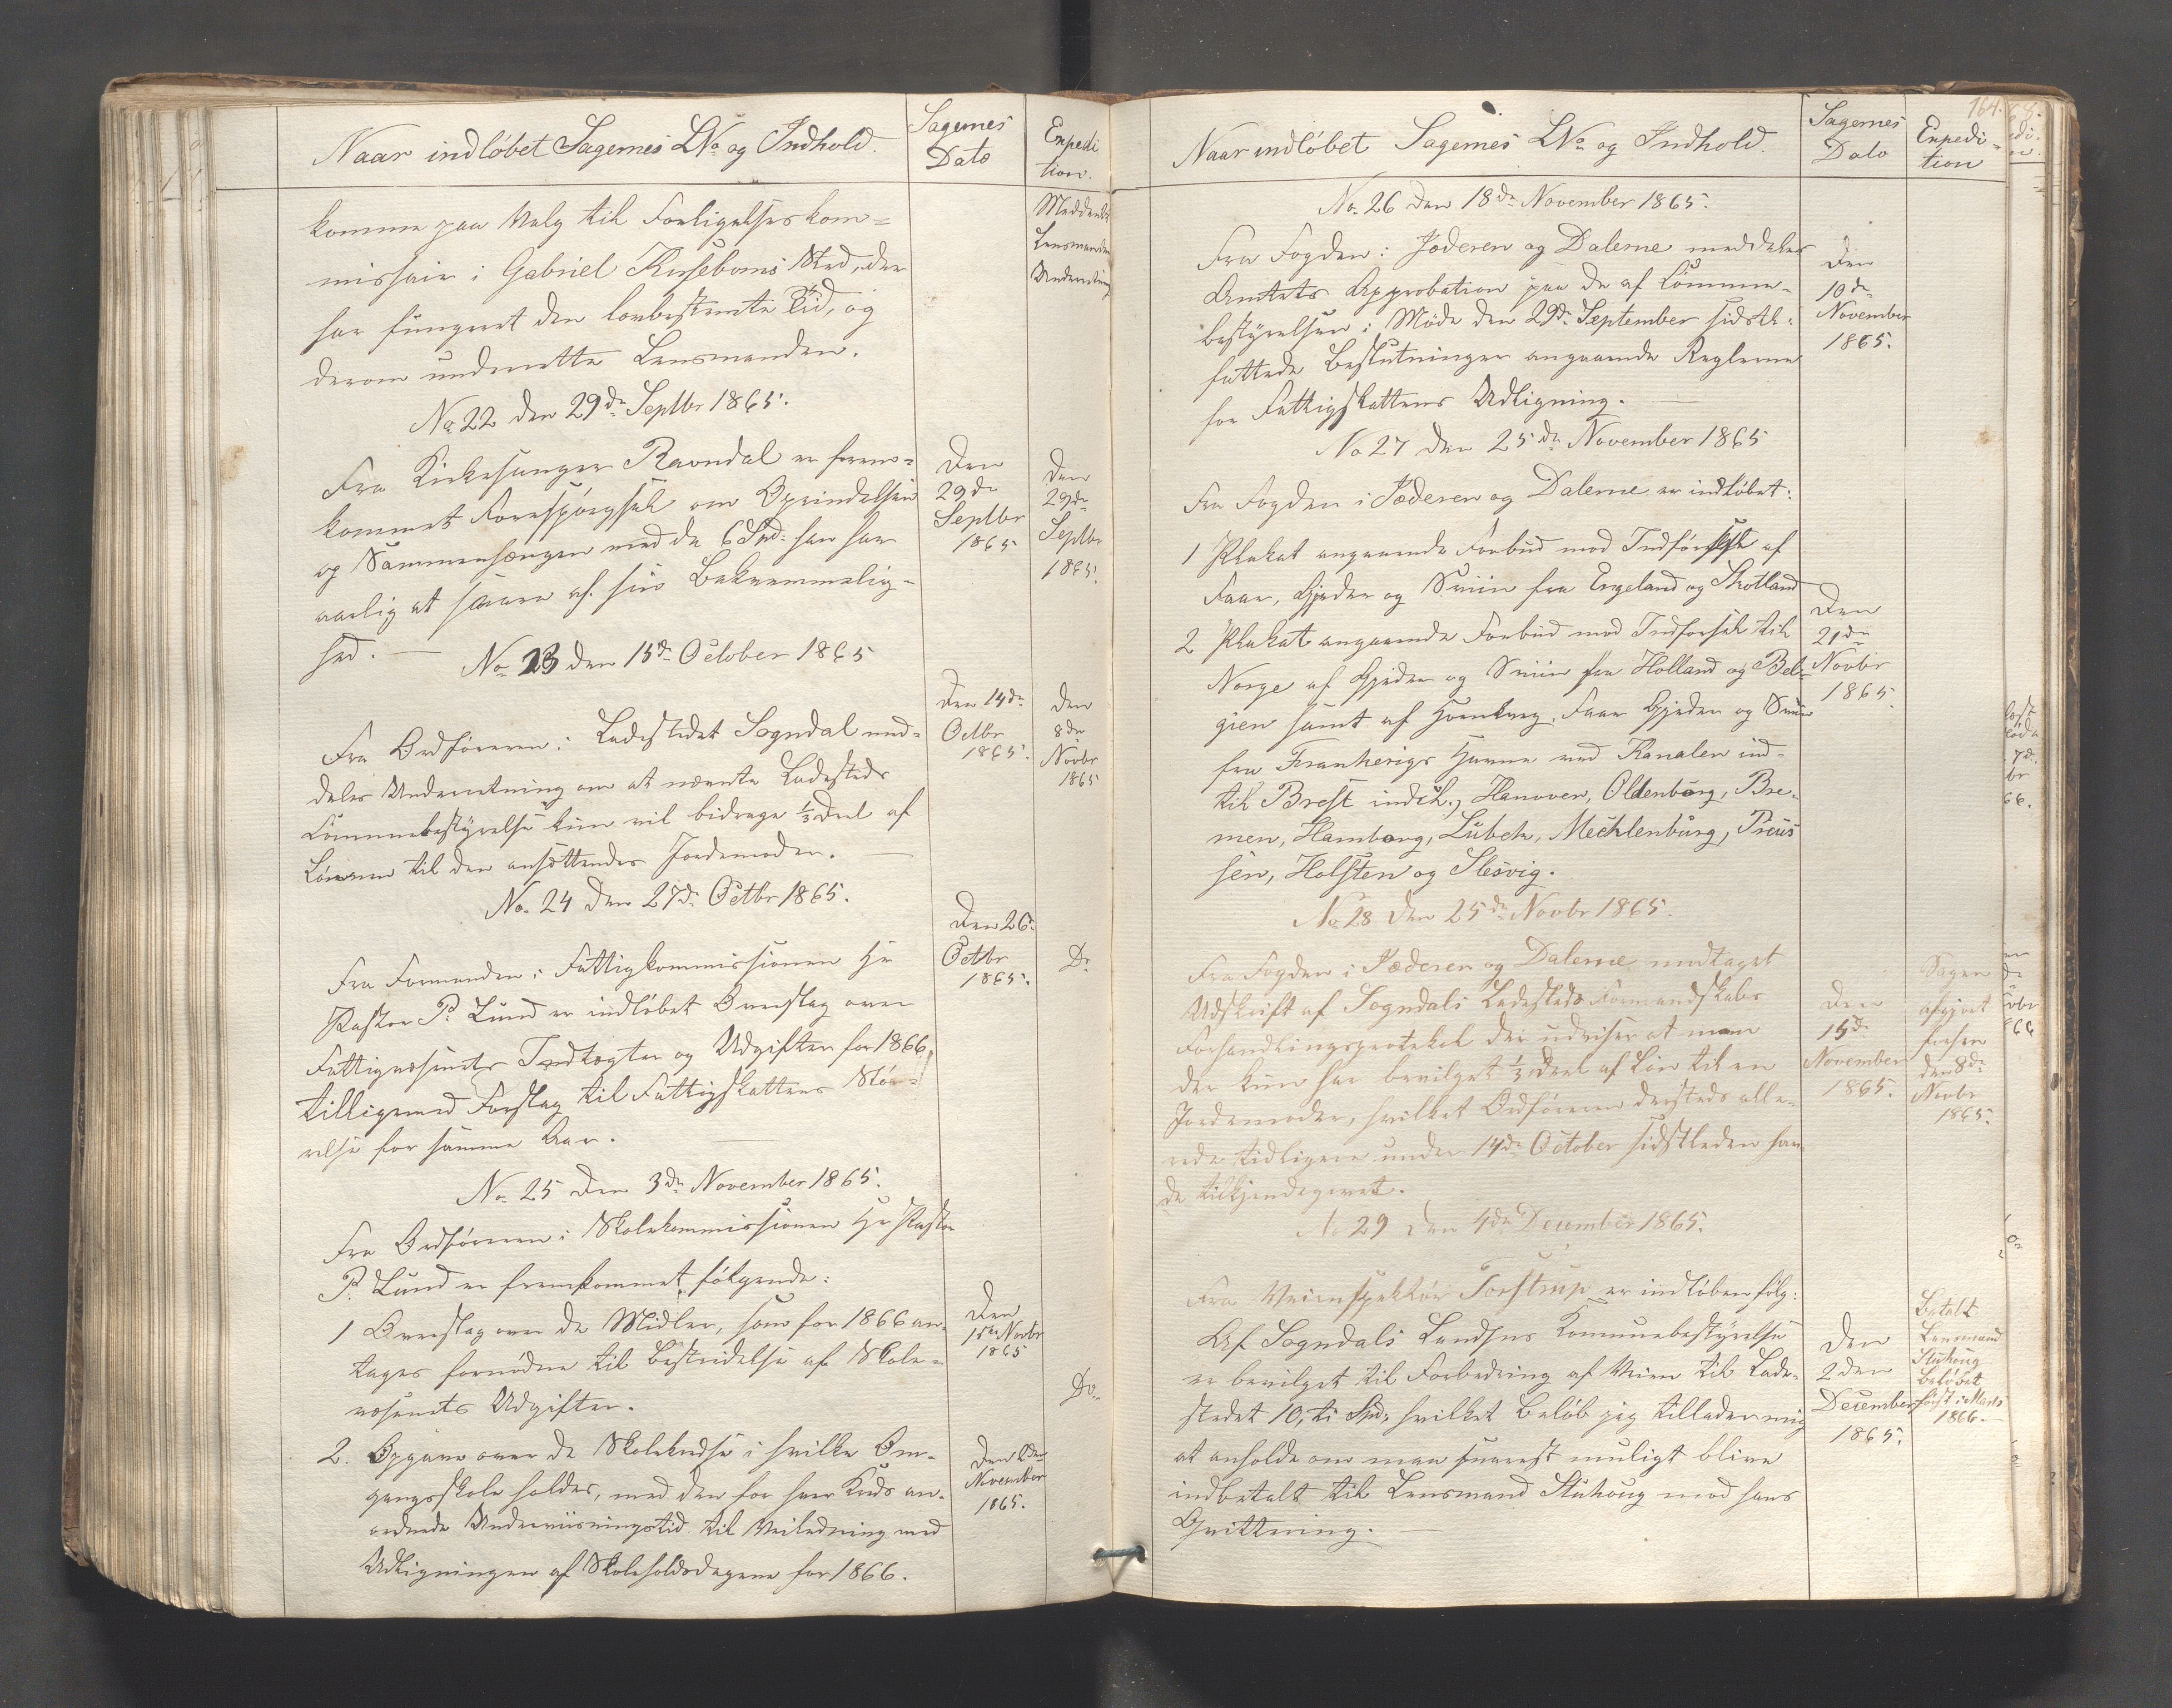 Naar indløbet Sagernes LNo og Indhold.
Sagernes
Dato
Expedi
tion.
komme paa Valg til Forligelseskom-
missair i Gabriel Kusebons Sted, der
har fungeret den lovbestemte Tid, og
derom underrette Lensmanden.
Meddeelt
Lensmanden
Underretning
No 22 den 29de Septbr 1865.
Fra Kirkesanger Ravndal er frem-
kommet Forespørgsel om Oprindelsen
og Sammenhængen med de 6 Spd. han har
aarlig at svare af sin Bekvemmelig-
hed.
Den
29de
Septbr
1865
Den
29de
Septbr
1865.
No 23 den 15de October 1865
Fra Ordføreren i Ladestedet Sogndal med-
deles Underretning om at nævnte Ladesteds
Communebestyrelse kun vil bidrage ⅓ Deel af
Lønnen til den ansættendes Jordemoder.
Den 14de
Octbr
1865.
Den
8de
Novbr
1865
No. 24 den 27de Octbr 1865.
Fra Formanden i Fattigkommissionen Hr
Pastor P. Lund er indløbet Overslag over
Fattigvæsenets Indtægter og Udgifter for 1866
tilligemed Forslag til Fattigskattens Stør-
relse for samme Aar.
Den 26.
Octbr
1865.
Do
No 25 den 3de November 1865.
Fra Ordføreren i Skolekommissionen Hr Pastor
P. Lund er fremkommet følgende:
1 Overslag over de Midler, som for 1866 an-
tages fornødne til Bestridelse af Skole-
væsenets Udgifter.
Den
1ste Novbr
1865
Do
2. Opgave over de Skolekredse i hvilke Om-
gangsskole holdes, med den for hver Kreds an-
ordnede Underviisningstid til Veiledning med
Udligningen af Skoleholdsdagene for 1866.
Den 2den
November
1865.
164.
Naar indløbet Sagernes LNo og Indhold.
Sagernes
Dato
Expedi-
tion
No 26 den 18de November 1865.
Fra Fogden i Jæderen og Dalerne meddeles
Amtets Approbation paa de af Commune-
bestyrelsen i Møde den 29de September sidstl.
fattede Beslutninger angaaende Reglerne
for Fattigskattens Udligning.
Den
10de
November
1865.
No 27 den 25de November 1865
Fra Fogden i Jæderen og Dalerne er indløbet:
1 Plakat angaaende Forbud mod Indførsel af
Faar, Gjeder og Sviin fra Engeland og Skotland
2 Plakat angaaende Forbud mod Indførsel til
Norge af Gjeder og Sviin fra Holland og Bel-
gien samt af Hornkvæg, Faar Gjeder og Sviin
fra Frankerigs Havne ved Kanalen ind-
til Brest indcl., Hanover, Oldenborg, Bre-
men, Hamborg, Lübek, Mechlenburg, Preus
sen, Holsten og Slesvig.
Den
21de
Novbr
1865
No 28 den 25de Novbr 1865.
Fra Fogden i Jæderen og Dalerne modtaget
Udskrift af Sogndals Ladesteds Formandskabs
Forhandlingsprotokol der udviser at man
der kun har bevilget ⅓ Deel af Løn til en
Jordemoder, hvilket Ordføreren dersteds alle-
rede tidligere under 14de October sidstleden hav
de tilkjendegivet.
Den
15de
November
1865.
Sagen
afgjort
forhen
den 8de
Novbr
1865.
No 29 den 4de December 1865.
Fra Veiinspektør Torstrup er indløben følg:
Af Sogndals Landsogns Kommunebestyrelse
er bevilget til Forbedring af Veien til Lade-
stedet 10, ti Spd, hvilket Beløb jeg tillader mig
at anholde om maa snarest muligt blive
indbetalt til Lensmand Stuhoug mod hans
Qvittering.
Den
2den
December
1865.
Betalt
Lensmand
Stuhoug
Beløbet
først i Marts
1866.